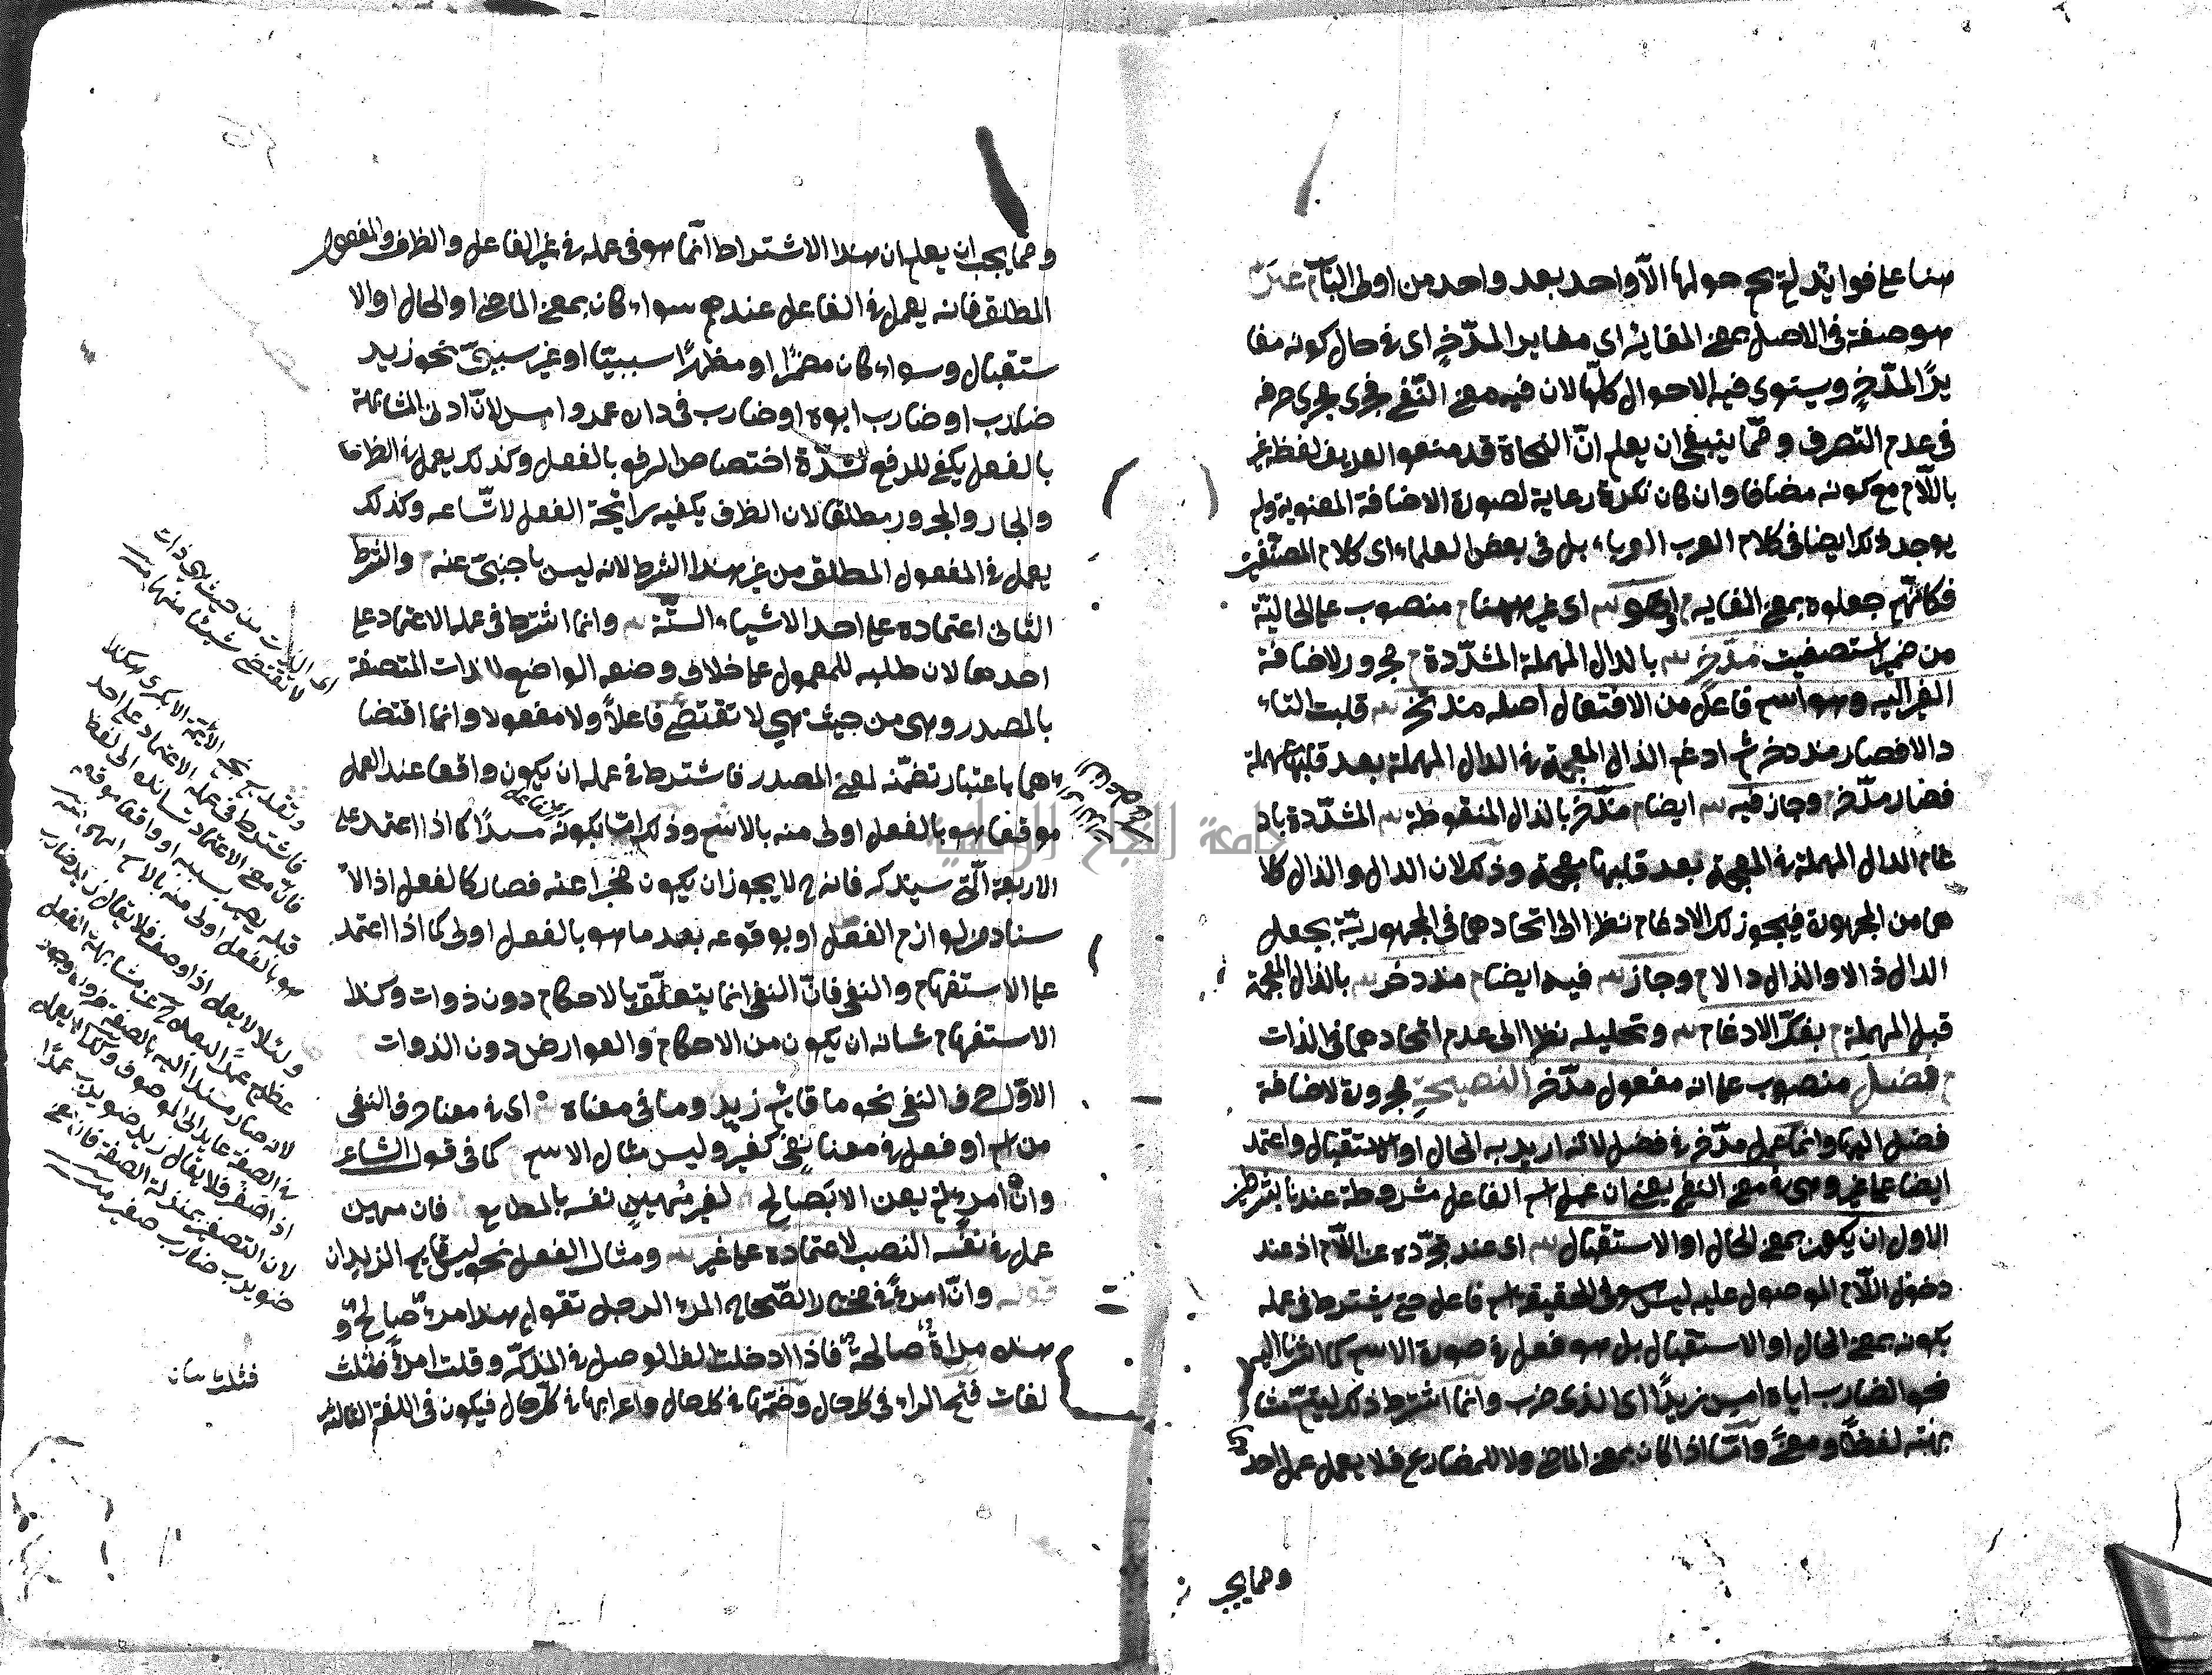 هنا على فوايد لم يحم حولها الا واحد بعد واحد من اولى الباب غير
هو صفة فى الاصل بمعنى المغايرة اى مغاير المدّخر اى فى حال كونه مغا
يرًا لمدّخرٍ ويستوى فيه الاحوال كلّها لان فيه معنى النّفى فجرى مجرى حرفه
فى عدم التصرف وممّا ينبغى ان يعلم انّ النحاة قد منعوا تعريف لفظة غير
باللّام مع كونه مضافا وان كان نكرة رعاية لصورة الاضافة المعنوية ولم
يوجد ذلك ايضا فى كلام العرب العرباء بل فى بعض العلماء اى كلام المصنّفين
فكانّهم جعلوه بمعنى المغاير اى غير ههنا منصوب على الحاليّة
من ضمير استصفيت مدّخر بالدال المهملة المشدّدة مجرور لاضافة
الغير اليه وهو اسم فاعل من الافتعال اصله مذتخر قلبت التاء
دالا فصار مذدخر ثم ادغم الذال المعجمة فى الدال المهملة بعد قلبها مهملة
فصار مدّخر وجاز فيه ايضا مذّخر بالذال المنقوطة المشدّدة باد
غام الدال المهملة فى المعجمة بعد قلبها معجمة وذلك لان الدال والذال كلا
هما من المجهورة فيجوز لك الادغام نظرا الى اتحادهما فى المجهوريّة بجعل
الدال ذالا والذال دالا وجاز فيه ايضا مذدخر بالذال المعجمة
قبل المهملة بفكّ الادغام وتحليله نظرا الى عدم اتحادهما فى الذات
فضل منصوب على انه مفعول مدّخر النصيحة مجرورة لاضافة
فضل اليها وانما عمل مدّخر فى فضل لانّه اريد به الحال او الاستقبال واعتمد
ايضا على غير وهى فى معنى النفى يعنى ان عمل اسم الفاعل مشروطة عندنا بشرطين
الاول ان يكون بمعنى الحال او الاستقبال اى عند تجرّده عن اللّام اذ عند
دخول اللّام الموصول عليه ليس هو فى الحقيقة اسم فاعل حتى يشترط فى عمله
بكونه بمعنى الحال او الاستقبال بل هو فعل فى صورة الاسم كما اشرنا اليه
نحو الضارب اياه امس زيدًا اى الذى ضرب وانما اشترط ذلك ليتمّ مشا
بهته لفظًا ومعنًى وامّا اذا كان بمعنى الماضى ولا للمضارع فلا يعمل عمل احد
ومما يجب
ومما يجب ان يعلم ان هذا الاشتراط انّما هو فى عمله فى غير الفاعل والظرف والمفعول
المطلق فانه يعمل فى الفاعل عندهم سواء كان بمعنى الماضى او الحال او الا
ستقبال وسواء كان مضمرًا او مظهرًا سببيّا او غير سببىّ نحو زيد
ضارب او ضارب ابوه او ضارب فى داره عمرو امس لانّ ادنى المشابهة
بالفعل يكفى للرفع لشدّة اختصاص الرفع بالفعل وكذلك يعمل فى الظرف
والجار والمجرور مطلقا لان الظرف يكفيه رايحة الفعل لاتّساعه وكذلك
يعمل فى المفعول المطلق من غير هذا الشرط لانه ليس باجنبىّ عنه والشرط
الثانى اعتماده على احد الاشياء الستّة وانما اشترط فى عمله الاعتماد على
احدها لان طلبه للمعمول على خلاف وضعه الواضع للذات المتصفة
بالمصدر وهى من حيث هى لا تقتضى فاعلًا ولا مفعولا وانما اقتضا
هما باعتبار تضمّنه لمعنى المصدر فاشترط فى عمله ان يكون واقعا عند العمل
موقعا هو بالفعل اولى منه بالاسم وذلك امّا بكونه مسندًا كما اذا اعتمد على
الاربعة الّتى سيذكره فانه ح لا يجوز ان يكون مخبرا عنه فصار كالفعل اذ الا
سناد من لوازم الفعل او بوقوعه بعد ما هو بالفعل اولى كما اذا اعتمد
على الاستفهام والنفى فانّ النفى انما يتعلّق بالاحكام دون ذوات وكذا
الاستفهام شانه ان يكون من الاحكام والعوارض دون الذوات
الاوّل حرف النفى نحو ما قايم زيد وما فى معناه اى فى معنا حرف النفى
من اسم او فعل فى معنا نفى كغير وليس مثال الاسم كما فى قول الشاعر
وانّ امرءًا لم يعن الا بصالح لغير مُهينٍ نفسه بالمطامع فان مهين
عمل فى نفسه النصب لاعتماده على غير ومثال الفعل نحو ليس قايم الزيدان
قوله وانّ امرءً فى مختار الصّحاح المرء الرجل تقول هذا امرءٌ صالحٌ و
هذه مراةٌ صالحةٌ فاذا ادخلت الف الوصل فى المذكّر وقلت امرءٌ فثلث
لغات فتح الراء فى كل حال وضمّها فى كل حال واعرابها فى كلّ حال فيكون فى اللغة الثالثة
اى الذات من حيث هى ذات
لا تقتضى شيئا منهما منه
فاشترط فى عمله الاعتماد على احد
هو بالفعل اولى منه بالاسم
لان التصغير بمنزلة الصفة فان معنى
ضويرب ضارب صغير منه